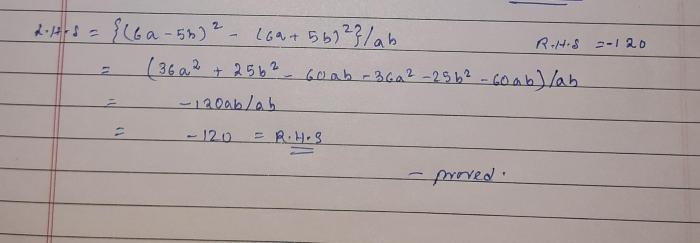 L.H.S = {(6a-5b)² - (6a+5b)²}/ab R.H.S = -120
= (36a² + 25b² - 60ab - 36a² - 25b² - 60ab)/ab
= -120ab/ab
= -120 = R.H.S
- proved.